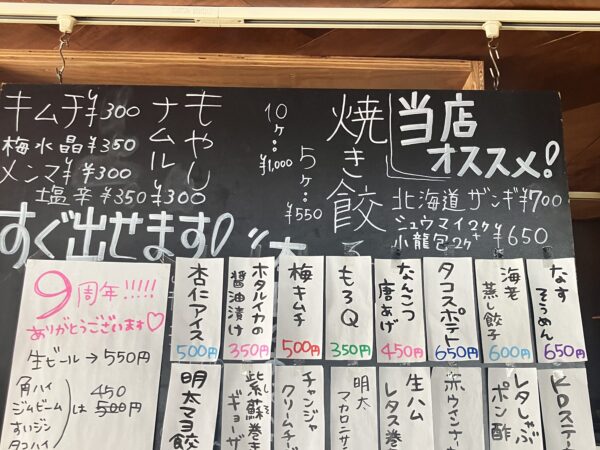 当店
オススメ!
北海道ザンギ¥700
シュウマイ2ヶ
小龍包2ヶ
¥650
焼き餃子
5ヶ…¥550
10ヶ…¥1,000
もやし
ナムル
¥300
キムチ¥300
梅水晶¥350
メンマ¥300
塩辛¥350
すぐ出せます!
なす
そうめん
650円
海老
蒸し餃子
600円
タコスポテト
650円
なんこつ
唐あげ
450円
もろQ
350円
梅キムチ
500円
ホタルイカの
醤油漬け
350円
杏仁アイス
500円
9周年!!!!!
ありがとうございます♡
生ビール→550円
角ハイ
ジムビーム
すいジン
タコハイ
は
450
500円
KDステー
レタしゃぶ
ポン酢
赤ウインナー
生ハム
レタス巻
明太
マカロニサン
チャンジャ
クリームチー
紫蘇巻き
ギョーザ
明太マヨ餃